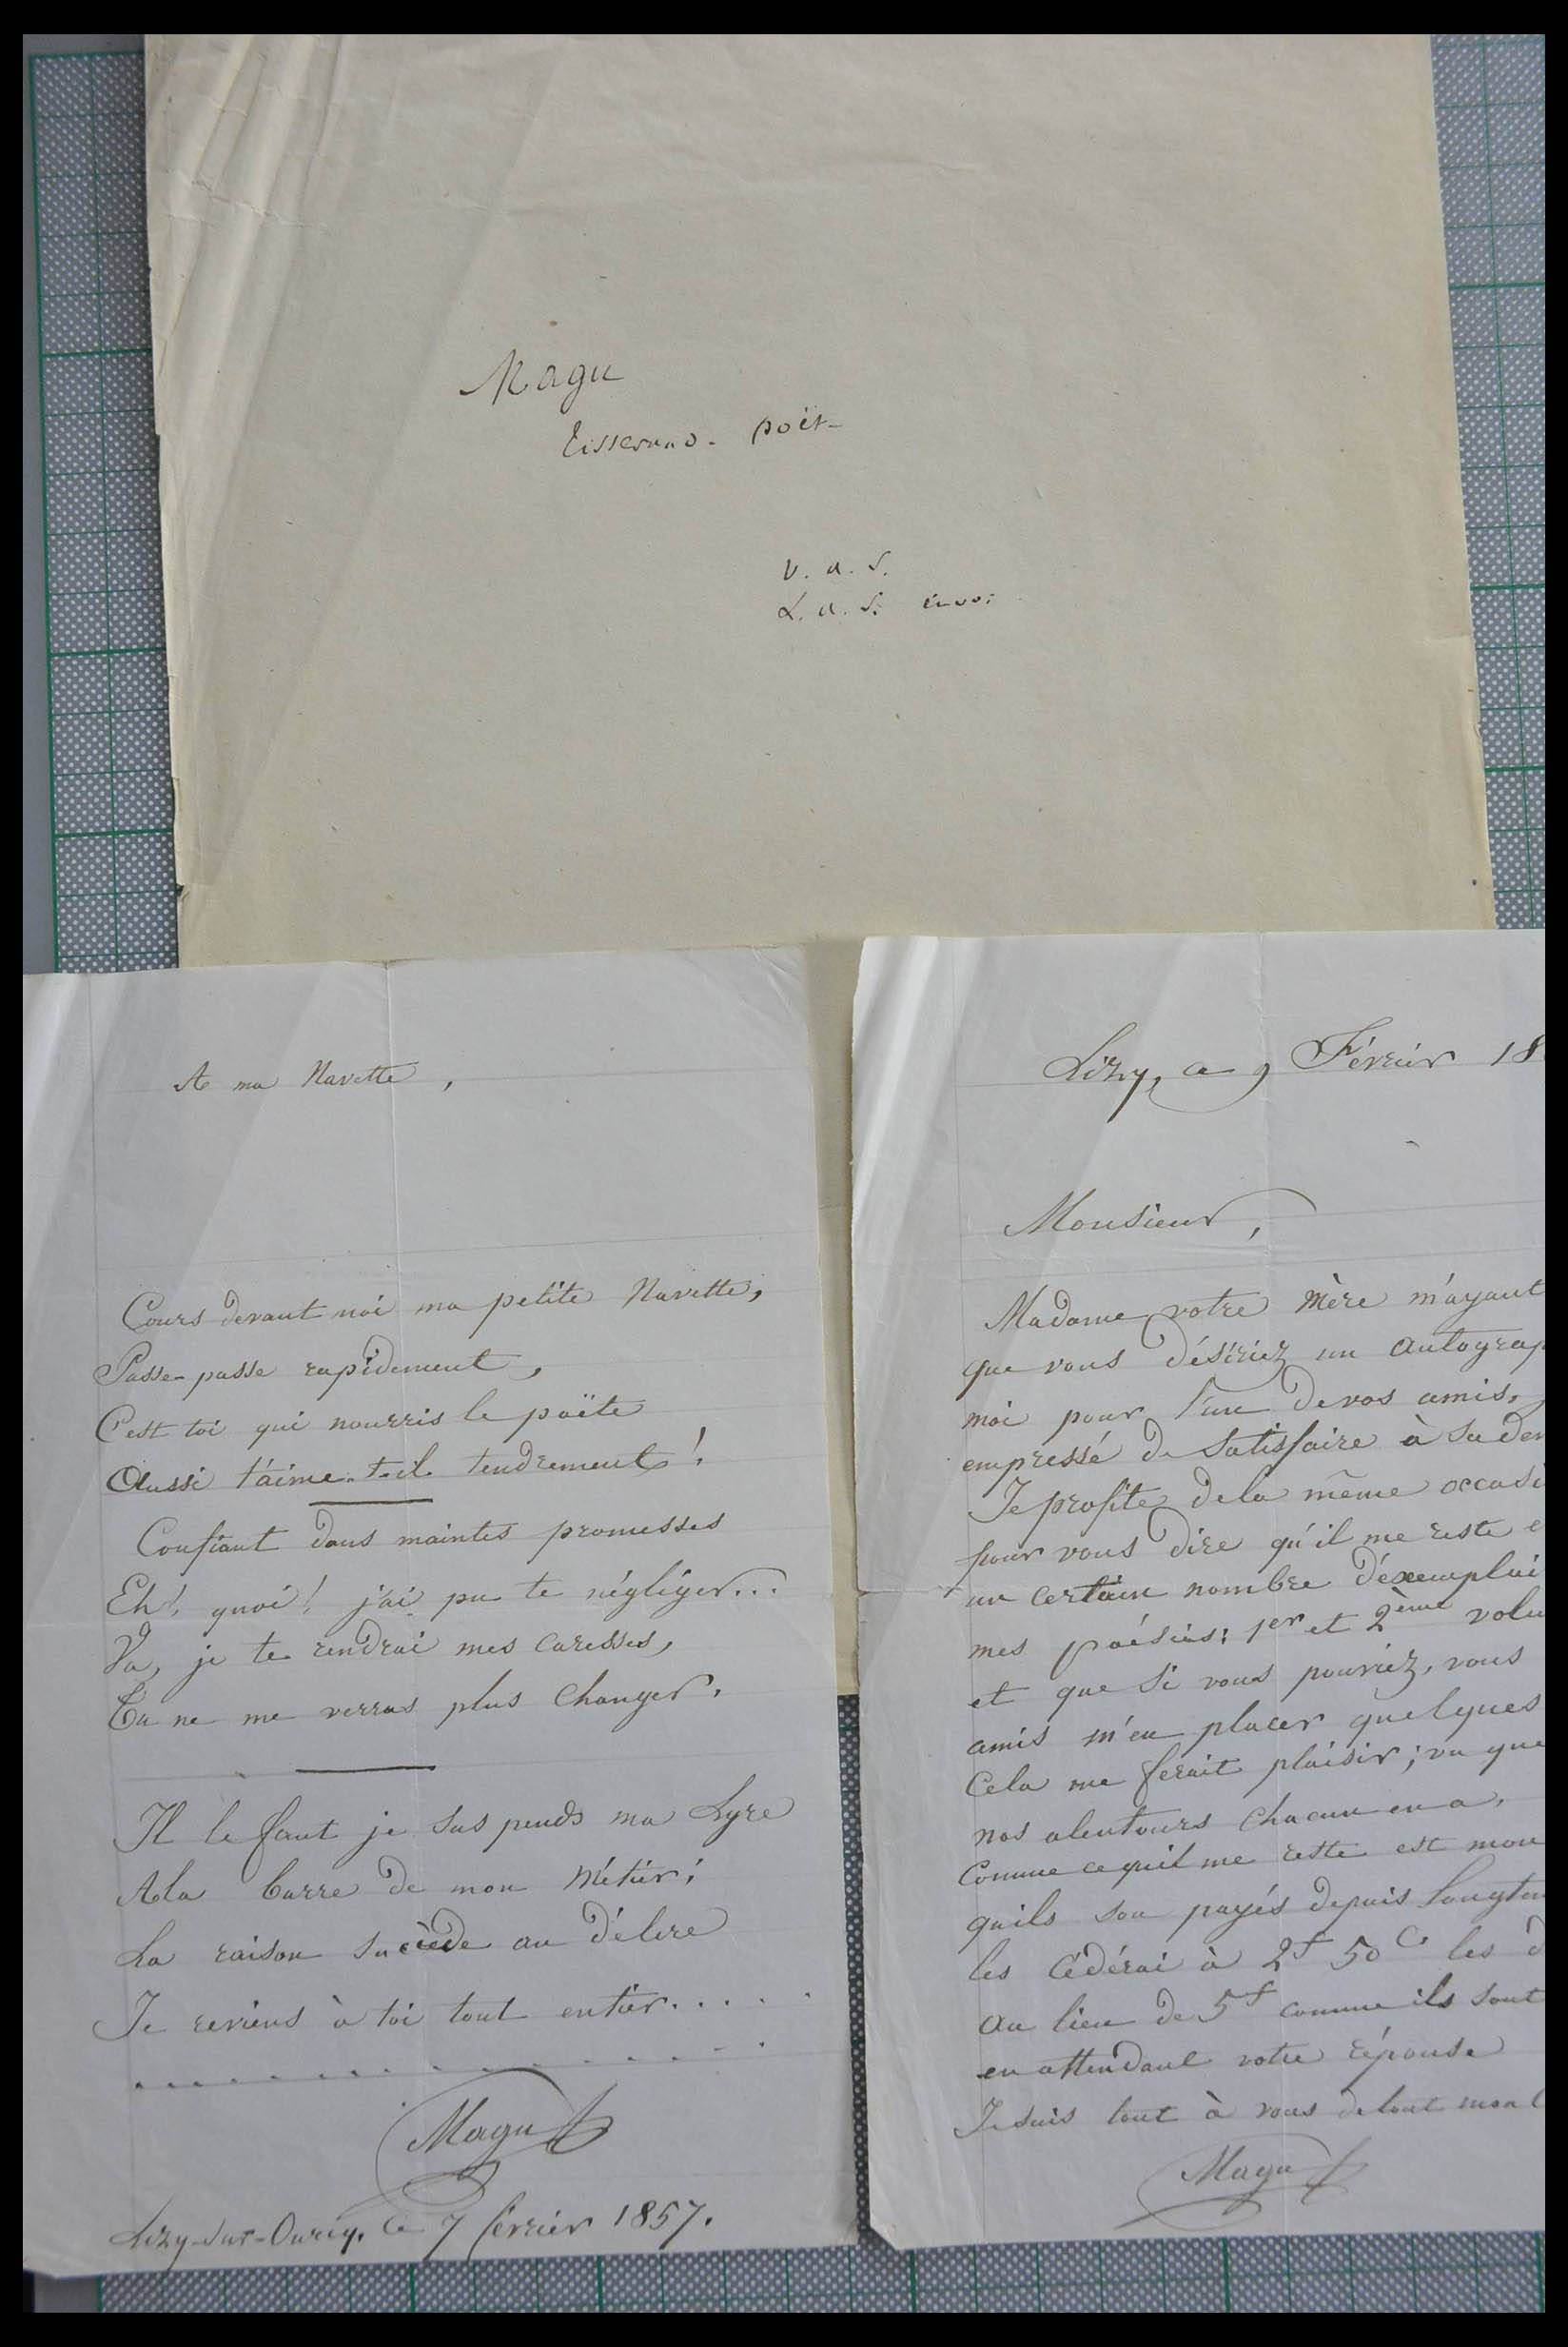 Magu
Tisserand - poët-
V. a. S.
L. a. S. envoi
A ma Navette,
Cours devant moi ma petite Navette,
Passe-passe rapidement,
C'est toi qui nourris le poëte
Aussi t'aime-t-il tendrement!
Confiant dans maintes promesses
Eh! quoi! j'ai pu te négliger...
Va, je te rendrai mes caresses,
Tu ne me verras plus changer.
Il le faut je suspends ma Lyre
A la barre de mon Métier;
La raison succède au délire
Je reviens à toi tout entier.....
Magu
Lizy-sur-Ourcq. ce 7 février 1857.
Lizy, ce 9 Février 18
Monsieur,
Madame votre Mère m'ayant
que vous désiriez un autograp
moi pour l'un de vos amis,
empressé de satisfaire à sa dem
Je profite de la même occasi
pour vous dire qu'il me reste e
un certain nombre d'éxemplai
mes poésies: 1er et 2ème volu
et que si vous pouviez, vous
amis m'en placer quelques
Cela me ferait plaisir; vu que
nos alentours chacun en a.
Comme ce qu'il me reste est mon
qu'ils son payés depuis longtem
les cédérai à 2f 50c les d
au lieu de 5f comme ils sont
en attendant votre réponse
Je suis tout à vous de tout mon
Magu